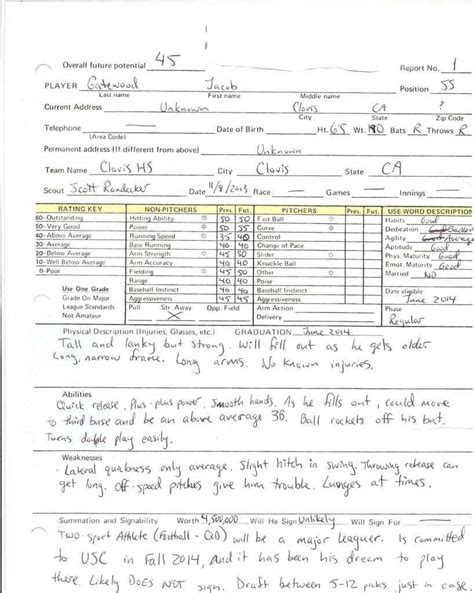 Overall future potential 45
Report No. 1
PLAYER Gatewood Jacob Position SS
Last name First name Middle name
Current Address Unknown Clovis CA ?
City State Zip Code
Telephone Date of Birth Ht. 65 Wt. 180 Bats R Throws R
(Area Code)
Permanent address (If different from above) Unknown
Team Name Clovis HS City Clovis State CA
Scout Scott Date 11/8/2013 Race Games Innings
RATING KEY NON-PITCHERS Pres. Fut. PITCHERS Pres. Fut. USE WORD DESCRIPTION
80-Outstanding Hitting Ability Fast Ball Habits Good
50-Very Good Power Curve Dedication
40-Above Average Running Speed Control Agility
30-Average Base Running Change of Pace Aptitude Good
20-Below Average Arm Strength Slider Phys. Maturity Good
10-Well Below Average Arm Accuracy Knuckle Ball Emot. Maturity Good
0-Poor Fielding Other Married No
Range Poise
Use One Grade Baseball Instinct Baseball Instinct Date eligible
Grade On Major Aggressiveness Aggressiveness June 2014
League Standards Pull Str. Away Opp. Field Arm Action Phase
Not Amateur Delivery Regular
Physical Description (Injuries, Glasses, etc.) GRADUATION June 2014
Tall and lanky but strong. Will fill out as he gets older
Long, narrow frame. Long arms. No known injuries.
Abilities
Quick release. Plus-plus power. Smooth hands. As he fills out, could move
to third base and be an above average 3B. Ball rockets off his bat.
Turns double play easily.
Weaknesses
Lateral quickness only average. Slight hitch in swing. Throwing release can
get long. Off-speed pitches give him trouble. Lunges at times.
Summation and Signability Worth 4,500,000 Will He Sign Unlikely Will Sign For
Two-sport Athlete (Football - QB) will be a major leaguer. Is committed
to USC in Fall 2014, and it has been his dream to play
there. Likely DOES NOT sign. Draft between 5-12 picks just in case.